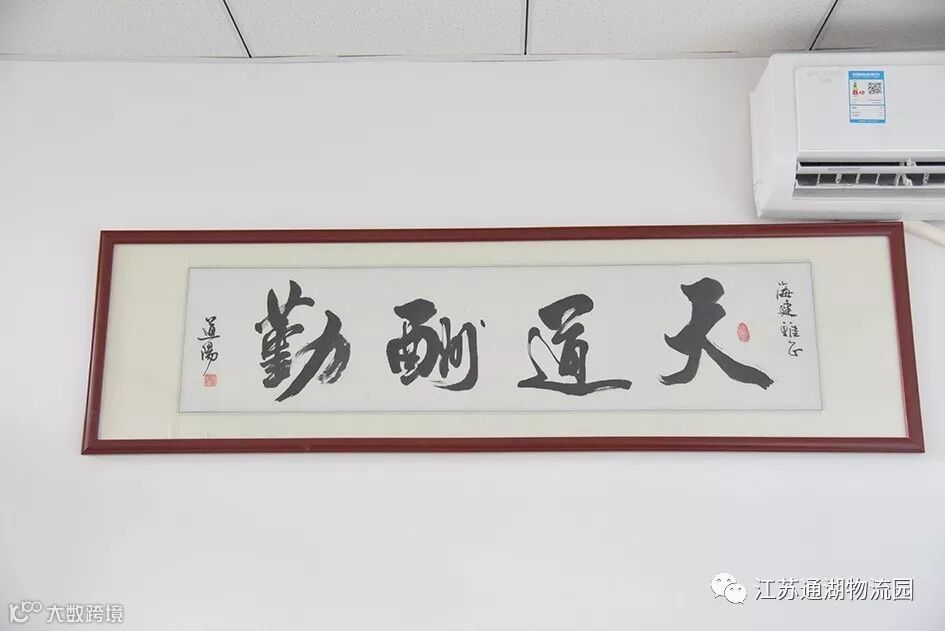 海建雅正
天道酬勤
道陽
江苏通湖物流园
大数跨境